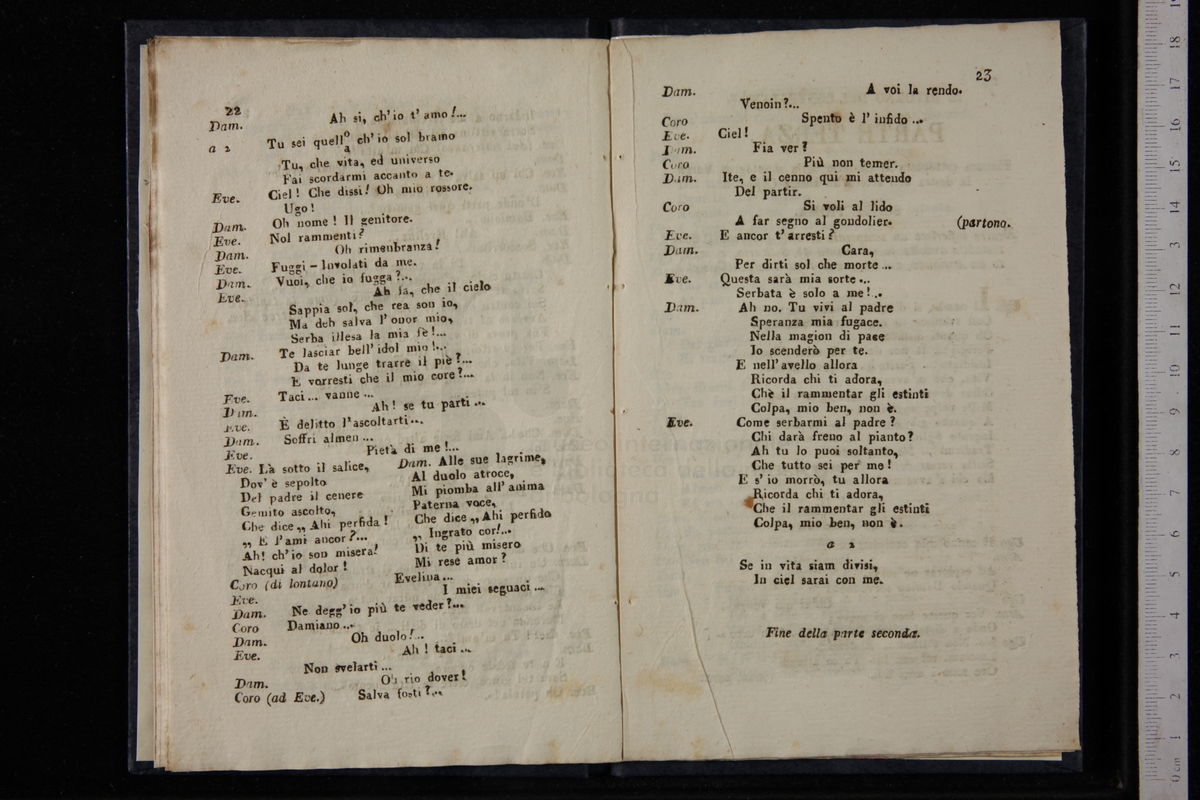 22
Dam. Ah si, ch' io t' amo!...
a 2 Tu sei quell° ch' io sol bramo
Tu, che vita, ed universo
Fai scordarmi accanto a te.
Eve. Ciel! Che dissi! Oh mio rossore.
Ugo!
Dam. Oh nome! Il genitore.
Eve. Nol rammenti?
Dam. Oh rimenbranza!
Eve. Fuggi - Involati da me.
Dam. Vuoi, che io fugga?...
Eve. Ah fa, che il cielo
Sappia sol, che rea son io,
Ma deh salva l' onor mio,
Serba illesa la mia fè!...
Dam. Te lasciar bell' idol mio!...
Da te lunge trarre il piè?...
E vorresti che il mio core?...
Eve. Taci... vanne ...
Dam. Ah! se tu parti ...
Eve. È delitto l' ascoltarti...
Dam. Soffri almen ...
Eve. Pietà di me!...
Eve. Là sotto il salice,
Dov' è sepolto
Del padre il cenere
Gemito ascolto,
Che dice „ Ahi perfida!
„ E l' ami ancor?...
Ah! ch' io son misera!
Nacqui al dolor!
Dam. Alle sue lagrime,
Al duolo atroce,
Mi piomba all' anima
Paterna voce,
Che dice „ Ahi perfido
„ Ingrato cor!...
Di te più misero
Mi rese amor?
Coro (di lontano) Evelina ...
Eve. I miei seguaci ...
Dam. Ne degg' io più te veder?...
Coro Damiano ...
Dam. Oh duolo!...
Eve. Ah! taci ...
Non svelarti ...
Dam. Oh rio dover!
Coro (ad Eve.) Salva fosti?...
23
Dam. A voi la rendo.
Venoin?...
Coro Spento è l' infido ...
Eve. Ciel!
Dam. Fia ver?
Coro Più non temer.
Dam. Ite, e il cenno qui mi attendo
Del partir.
Coro Si voli al lido
A far segno al gondolier. (partono.
Eve. E ancor t' arresti?
Dam. Cara,
Per dirti sol che morte ...
Eve. Questa sarà mia sorte ...
Serbata è solo a me!..
Dam. Ah no. Tu vivi al padre
Speranza mia fugace.
Nella magion di pace
Io scenderò per te.
E nell' avello allora
Ricorda chi ti adora,
Chè il rammentar gli estinti
Colpa, mio ben, non è.
Eve. Come serbarmi al padre?
Chi darà freno al pianto?
Ah tu lo puoi soltanto,
Che tutto sei per me!
E s' io morrò, tu allora
Ricorda chi ti adora,
Che il rammentar gli estinti
Colpa, mio ben, non è.
a 2
Se in vita siam divisi,
In ciel sarai con me.
Fine della parte seconda.